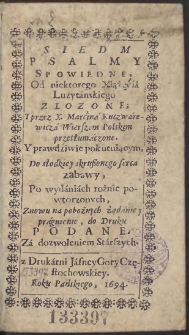 SIEDM
PSALMY
SPOWIEDNE,
Od niektorego Xiążęcia
Luzytáńskiego
ZLOZONE;
I przez X. Marcina Kuczwáre-
wiczá Wierszem Polskim
przetłumáczone.
Y prawdźiwie pokutuiącym,
Do słodkiey skruszonego sercá
zabáwy,
Po wydániách rożnie po-
wtorzonych,
Znowu ná pobożnych żądánie,
pragnienie, do Druku
PODANE.
Zá dozwoleniem Stárszych,
z Drukárni Jásney Gory Czę-
stochowskiey.
Roku Páńskiego, 1694.
133397